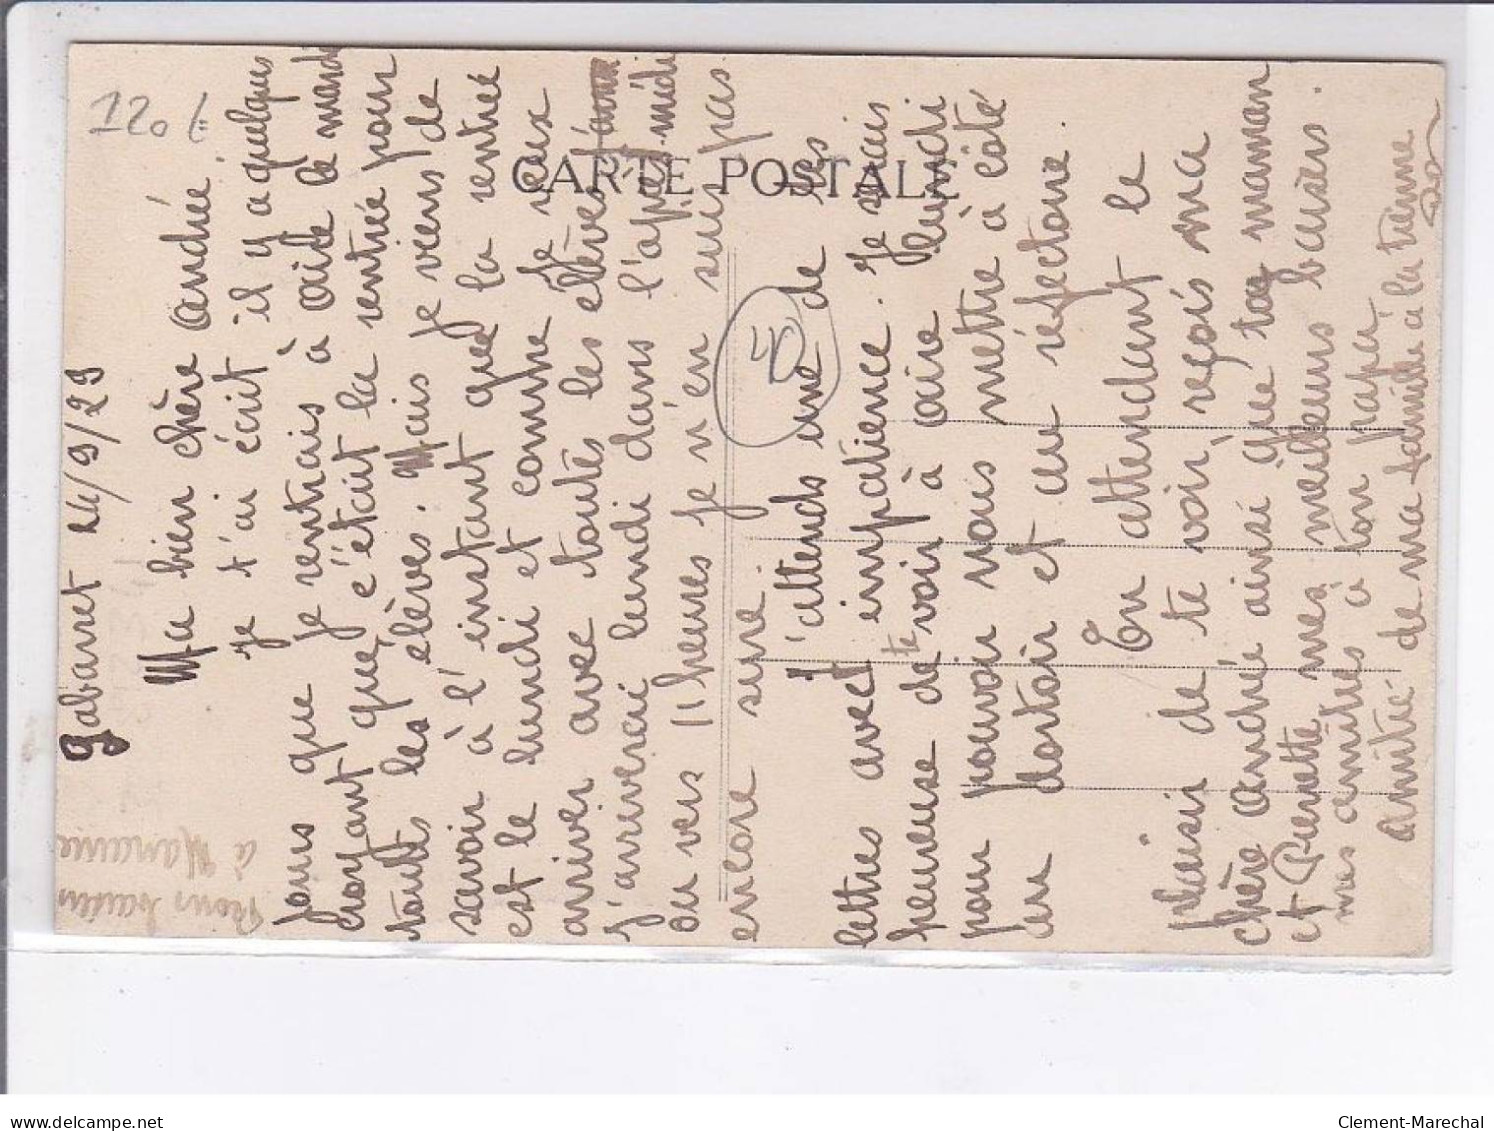 Gabarret 24/9/29
Ma bien chère Andrée
je t'ai écrit il y a quelques
jours que je rentrais à aire le mardi
croyant que c'était la rentrée pour
toutes les elèves. Mais je viens de
savoir à l'instant que la rentrée
est le lundi et comme je veux
arriver avec toutes les elèves
j'arriverai lundi dans l'après midi
ou vers 11 heures je n'en suis pas
encore sure.
J'attends une de tes
lettres avec impatience. Je serais
heureuse de te voir à aire lundi
pour pouvoir nous mettre à côté
au dortoir et au réfectoire.
En attendant le
plaisir de te voir, reçois ma
chère Andrée ainsi que ta maman
et Pierrette mes meilleurs baisers.
mes amitiés à ton papa,
amitié de ma famille à la tienne
Bons baisers
à
120 F
40
CARTE POSTALE
Clement-Marechal
delcampe.net